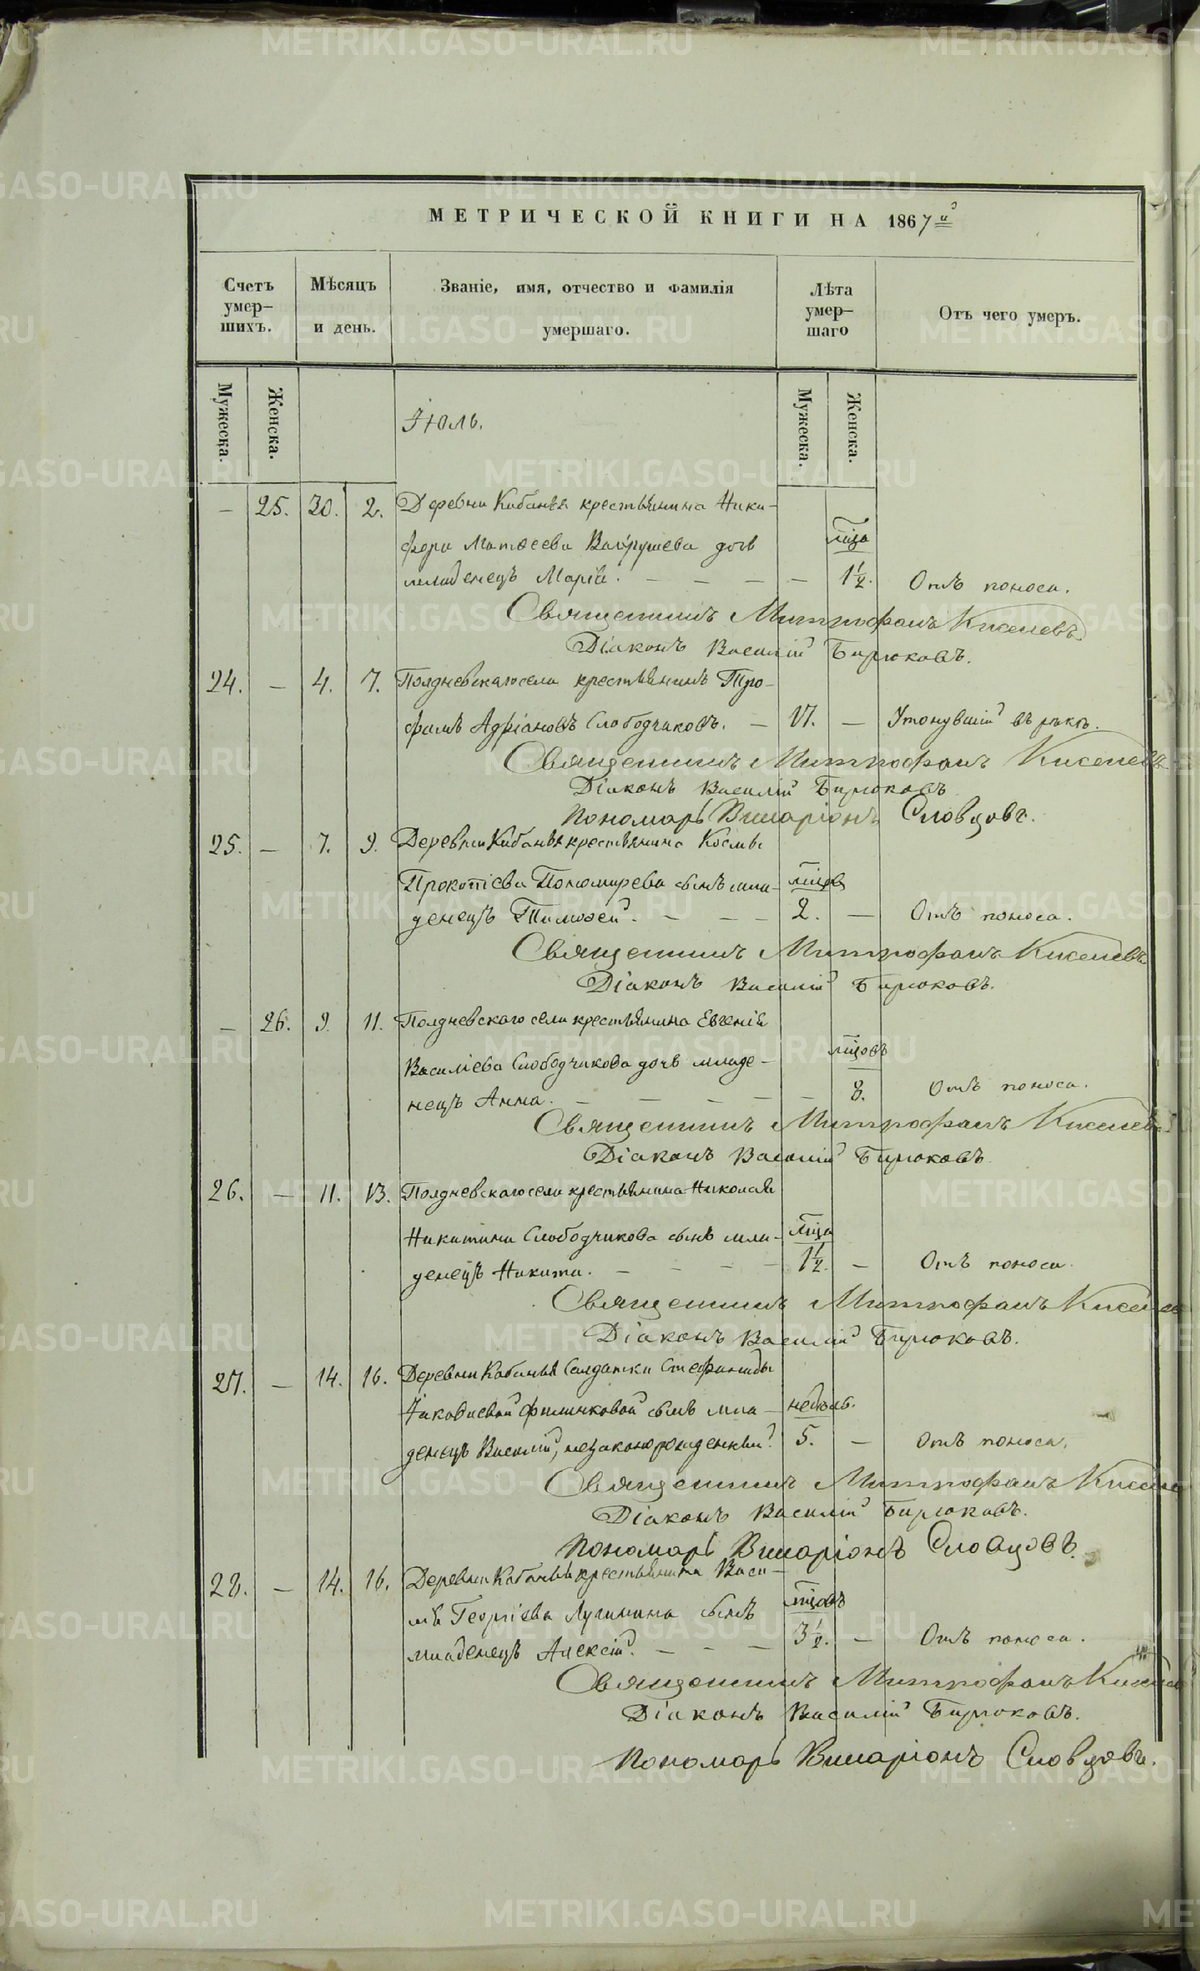 МЕТРИЧЕСКОЙ КНИГИ НА 1867й
Счетъ умер-шихъ.
Мѣсяцъ и день.
Званіе, имя, отчество и фамилія умершаго.
Лѣта умер-шаго
Отъ чего умеръ.
Мужеска.
Женска.
Іюль.
Мужеска.
Женска.
— 25. 30. 2. Деревни Кабаньѣ крестьянина Ники-
фора Матѳеева Вахрушева дочь мѣца
младенецъ Марія. — — — — 1½. Отъ поноса.
Священникъ Митрофанъ Киселевъ
Діаконъ Василій Бирюковъ.
24. — 4. 7. Полдневскаго села крестьянинъ Тро-
фимъ Адріановъ Слободчиковъ. — 17. — Утонувшій въ рѣкѣ.
Священникъ Митрофанъ Киселевъ
Діаконъ Василій Бирюковъ
Пономарь Виларіонъ Словцовъ.
25. — 7. 9. Деревни Кабаньѣ крестьянина Космы
Прокопіева Пономарева сынъ мла- мѣцовъ
денецъ Тимоѳей. — — — 2. — Отъ поноса.
Священникъ Митрофанъ Киселевъ
Діаконъ Василій Бирюковъ.
— 26. 9. 11. Полдневскаго села крестьянина Евгенія
Василіева Слободчикова дочь младе- мѣцовъ
нецъ Анна. — — — — — 8. Отъ поноса.
Священникъ Митрофанъ Киселевъ
Діаконъ Василій Бирюковъ.
26. — 11. 13. Полдневскаго села крестьянина Николая
Никитина Слободчикова сынъ мла- мѣца
денецъ Никита. — — — — 1½. — Отъ поноса.
Священникъ Митрофанъ Киселевъ
Діаконъ Василій Бирюковъ.
27. — 14. 16. Деревни Кабаньѣ Солдатки Стефаниды
Іаковлевой Филинковой сынъ мла- недѣль.
денецъ Василій, незаконорожденный. 5. — Отъ поноса.
Священникъ Митрофанъ Киселевъ
Діаконъ Василій Бирюковъ.
Пономарь Виларіонъ Словцовъ.
28. — 14. 16. Деревни Кабаньѣ крестьянина Васи-
лія Георгіева Лугинина сынъ мѣцовъ
младенецъ Алексій. — — — 3½. — Отъ поноса.
Священникъ Митрофанъ Киселевъ
Діаконъ Василій Бирюковъ.
Пономарь Виларіонъ Словцовъ.
METRIKI.GASO-URAL.RU